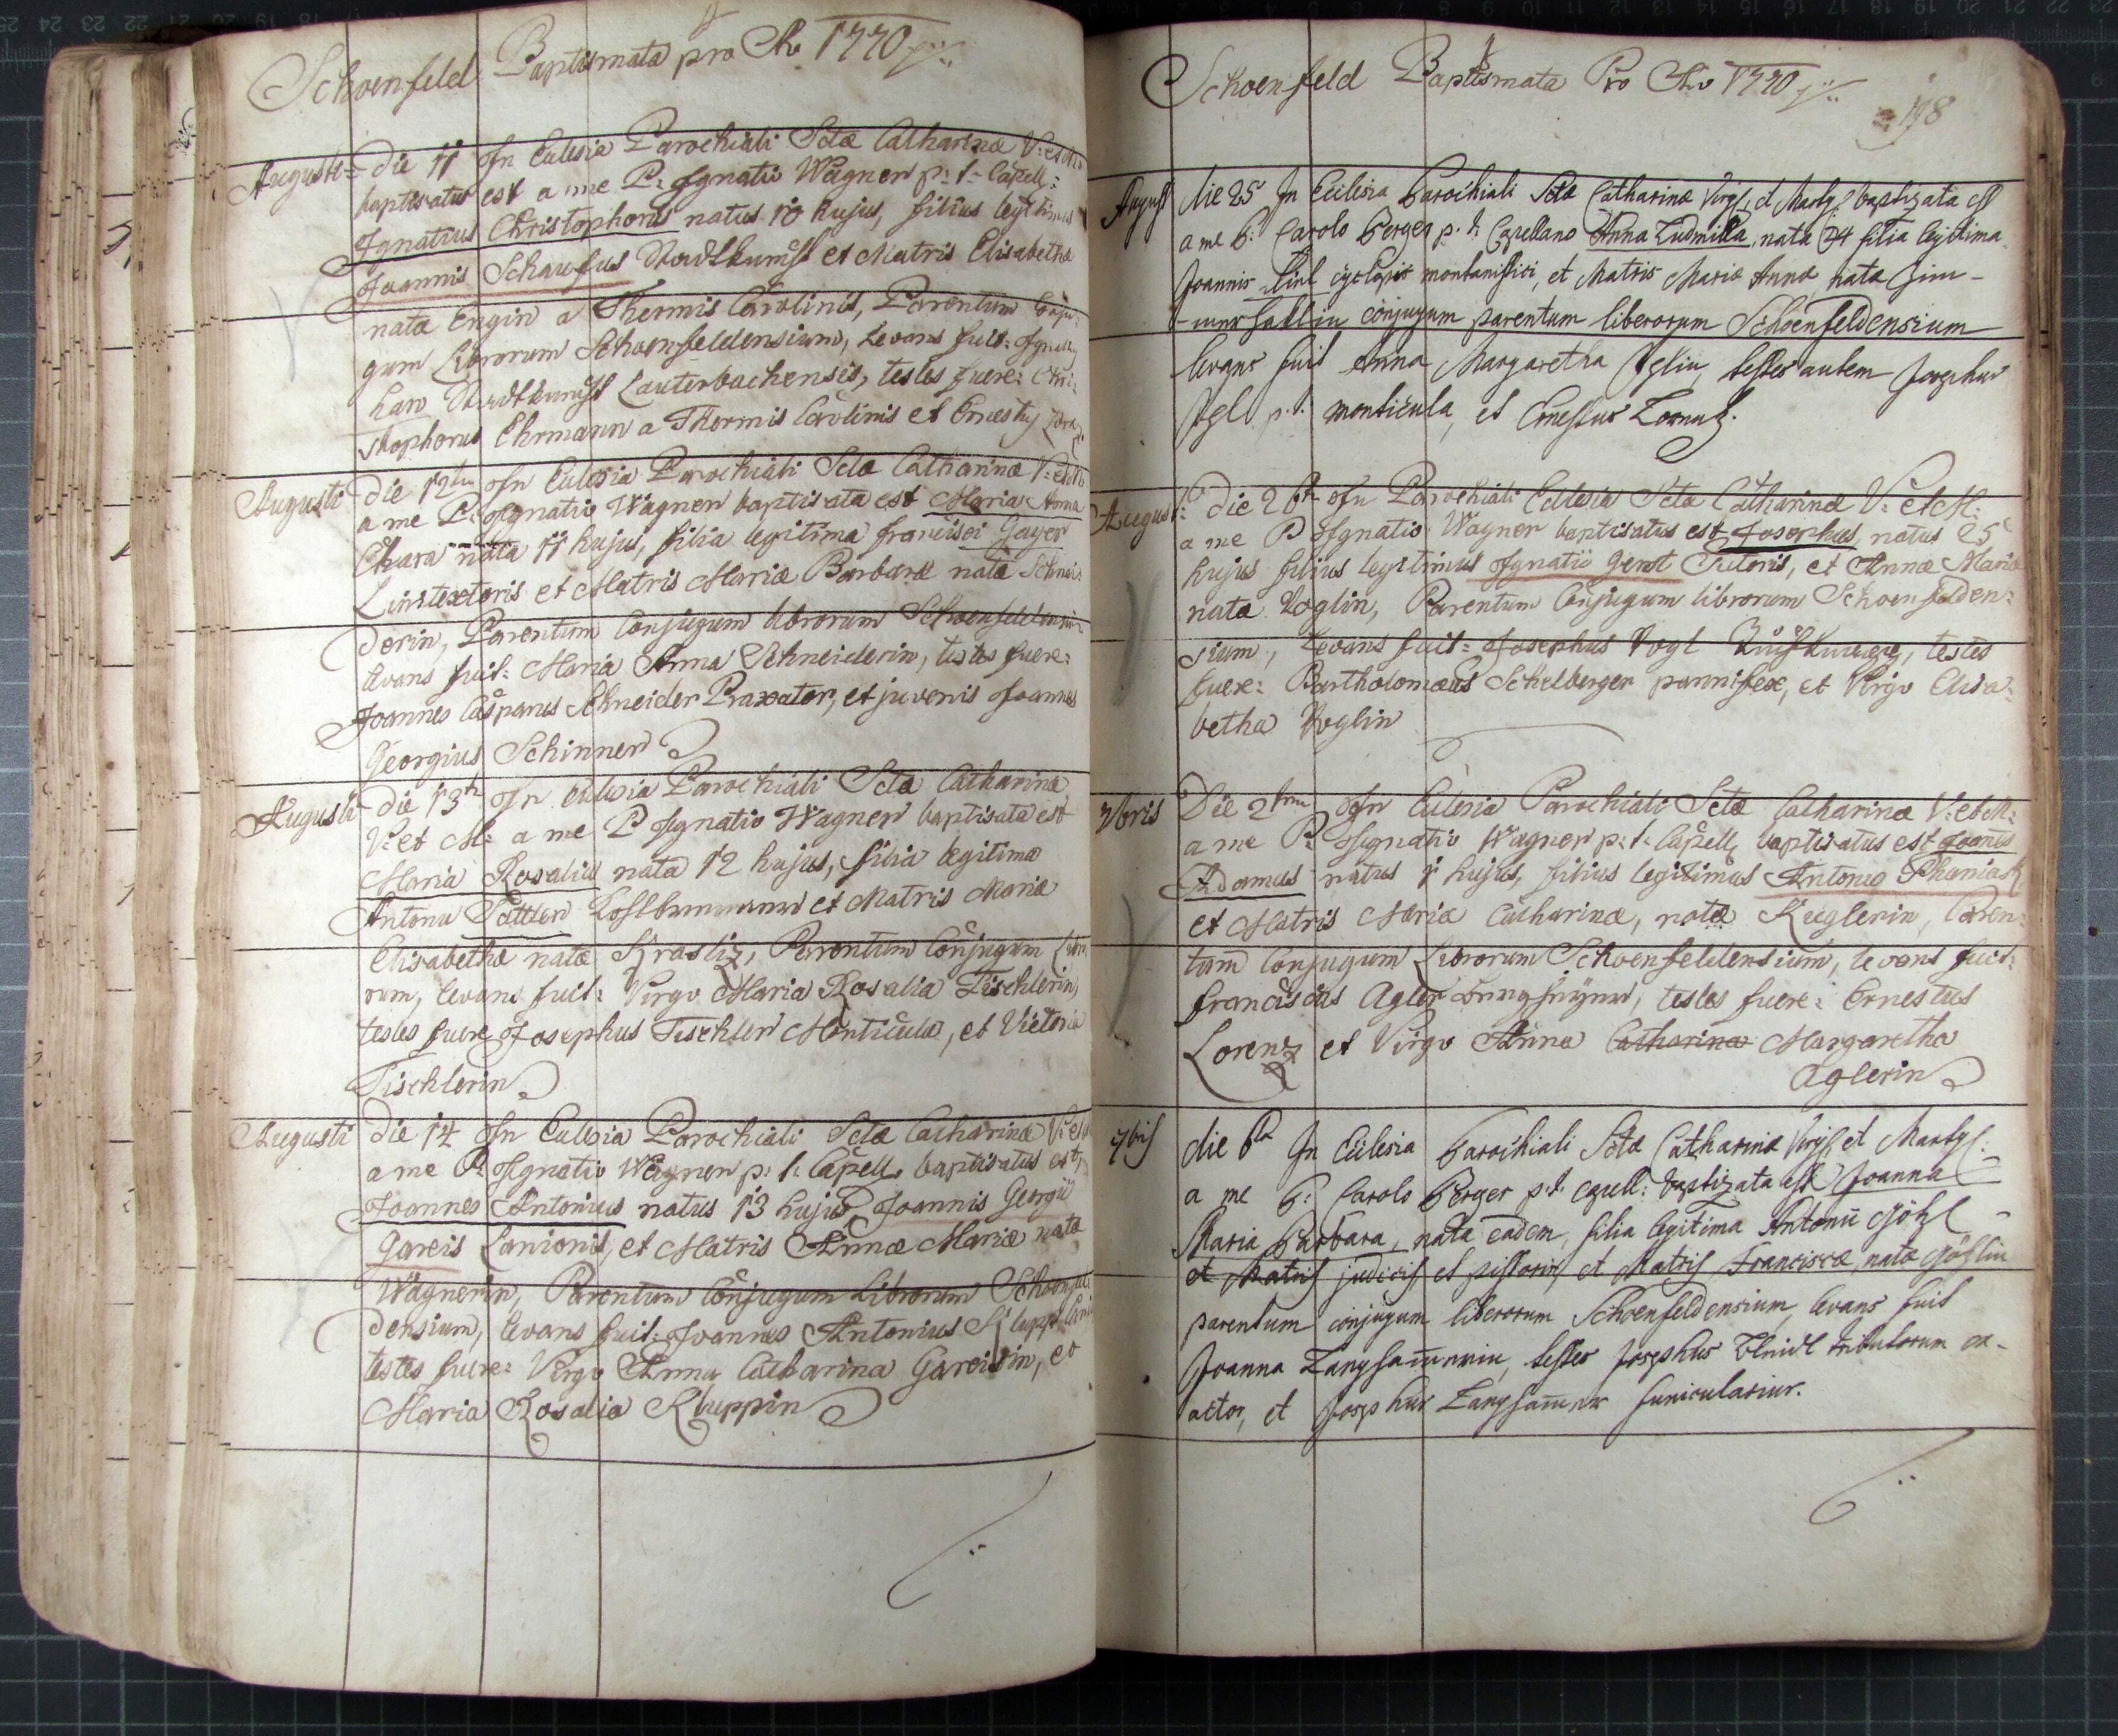 Schoenfeld Baptismata pro Ao 1770
Augusti Die 11 In Eclesia Parochiali Sctæ Catharinæ V: et M:
baptisatus est a me P: Ignatio Wagner p: t: Capell:
Ignatius Christophorus natus 10 hujus, filius legitimus
Joannis Schaufus et Matris Elisabethæ
nata Engin a Thermis Carolinis, Parentum Conju-
gum Librorum Schoenfeldensium, Levans fuit:
Lauterbachensis, testes fuere: Chri-
stophorus Ehrmann a Thermis Carolinis et Ernestus
Augusti Die 12 In Eclesia Parochiali Sctæ Catharinæ V: et M:
a me P: Ignatio Wagner baptisata est Maria Anna
Chara nata 11 hujus, filia legitima Francisci Geyer
Linitextoris et Matris Mariæ Barbaræ natæ Schnei:
derin, Parentum Conjugum librorum Schoenfeldensium
levans fuit: Maria Anna Schneiderin, testes fuere:
Joannes Casparus Schneider Braxator, et juvenis Joannes
Georgius Schinner
Augusti Die 13 In Eclesia Parochiali Sctæ Catharinæ
V: et M: a me P Ignatio Wagner baptisata est
Maria Rosalia nata 12 hujus, filia legitima
Antonii Sattler et Matris Mariæ
Elisabethæ natæ Parentum Conjugum Libro
rum, levans fuit: Virgo Maria Rosalia Tischlerin,
testes fuere Josephus Tischler Monticula, et Victoria
Tischlerin
Augusti Die 14 In Eclesia Parochiali Sctæ Catharinæ V: et M
a me P: Ignatio Wagner p: t: Capell: baptisatus est,
Joannes Antonius natus 13 hujus, Joannis Georgii
Gareis Lanionis, et Matris Annæ Mariæ nata
Wagnerin, Parentum Conjugum Librorum Schoenfel
densium, levans fuit: Joannes Antonius
testes fuere: Virgo Anna Catharina Gareisin, et
Maria Rosalia Kluppin
Schoenfeld Baptismata Pro Ao 1770
198
August die 25 In Ecclesia Parochiali Sctæ Catharinæ Virg: et Marty: baptizata est
a me P: Carolo Berger p. t. Capellano Anna Ludmilla, nata 24 filia legitima
Joannis montanistici, et Matris Mariæ Annæ natæ Zim-
conjugum parentum liberorum Schoenfeldensium
levans fuit Anna Margaretha Iglin, testes autem Josephus
Igl p. t. monticula, et Ernestus
August: Die 26 In Parochiali Eclesia Sctæ Catharinæ V: et M:
a me P Ignatio Wagner baptisatus est Josephus, natus 25
hujus filius legitimus Ignatii Gerst Sutoris, et Annæ Mariæ
nata Voglin, Parentum Conjugum librorum Schoenfelden:
sium, Levans fuit: Josephus Vogl testes
fuere: Bartholomæus Schelberger pannifex, et Virgo Elisa:
betha Voglin
7bris Die 2 In Eclesia Parochiali Sctæ Catharinæ V: et M:
a me P: Ignatio Wagner p: t: Capell, baptisatus est Joanes
Adamus natus 1 hujus, filius legitimus Antonio
et Matris Mariæ Catharinæ, natæ Keglerin, Paren:
tum Conjugum Librorum Schoenfeldensium, levans fuit:
Franciscus Agler testes fuere: Ernestus
Lorenz et Virgo Anna Catharina Margaretha
Aglerin
7bris die 6 In Ecclesia Parochiali Sctæ Catharinæ Virg: et Marty:
a me P: Carolo Berger p. t. capell: baptizata est Joanna
Maria Barbara, nata eadem, filia legitima Antonii Götzl
et Matris judicis et pistoris, et Matris Franciscæ, natæ
parentum conjugum liberorum Schoenfeldensium, levans fuit
Joanna Langhammerin, testes Josephus tributorum ex-
actor, et Josephus Langhammer funicularius.